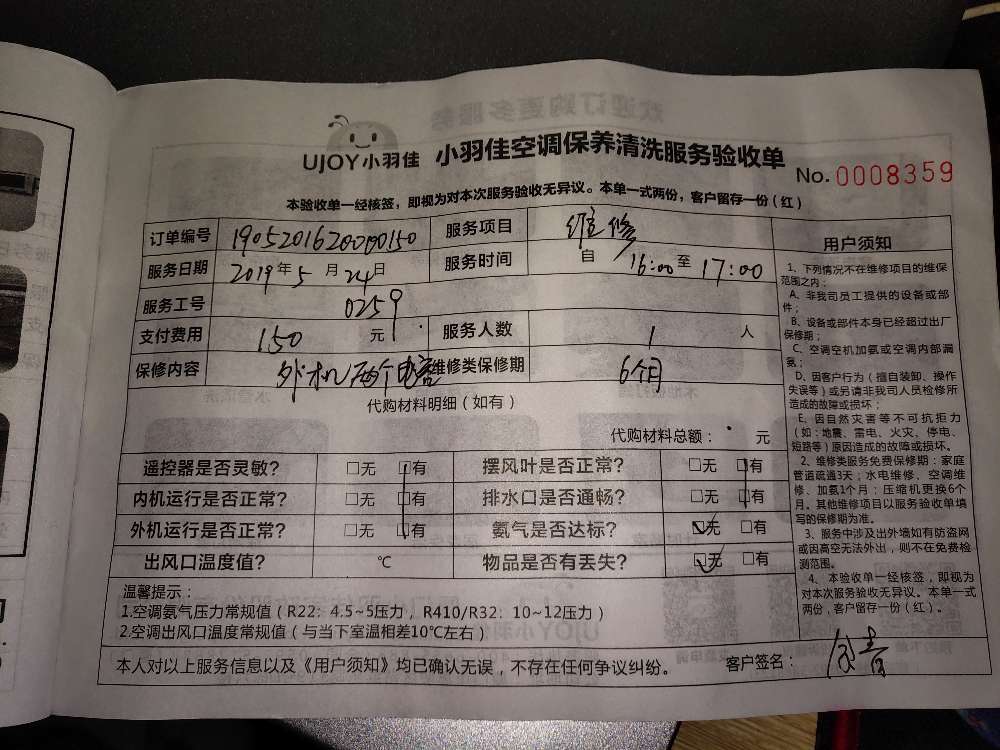 UJOY小羽佳 小羽佳空调保养清洗服务验收单
No. 0008359
本验收单一经核签，即视为对本次服务验收无异议。本单一式两份，客户留存一份（红）
订单编号 190520162000150 服务项目 维修
服务日期 2019年5月24日 服务时间 自16:00至17:00
服务工号 0259
支付费用 150元 服务人数 1人
保修内容 外机两个电容 维修类保修期 6个月
代购材料明细（如有）
代购材料总额： 元
遥控器是否灵敏？ □无 □有 摆风叶是否正常？ □无 □有
内机运行是否正常？ □无 □有 排水口是否通畅？ □无 □有
外机运行是否正常？ □无 □有 氨气是否达标？ □无 □有
出风口温度值？ ℃ 物品是否有丢失？ □无 □有
温馨提示：
1.空调氨气压力常规值（R22：4.5~5压力，R410/R32：10~12压力）
2.空调出风口温度常规值（与当下室温相差10℃左右）
本人对以上服务信息以及《用户须知》均已确认无误，不存在任何争议纠纷。 客户签名：
用户须知
1、下列情况不在维修项目的维保
范围之内：
A、非我司员工提供的设备或部
件；
B、设备或部件本身已经超过出厂
保修期；
C、空调空机加氨或空调内部漏
氨；
D、因客户行为（擅自装卸、操作
失误等）或另请非我司人员检修所
造成的故障或损坏；
E、因自然灾害等不可抗拒力
（如：地震、雷电、火灾、停电、
短路等）原因造成的故障或损坏。
2、维修类服务免费保修期：家庭
管道疏通3天；水电维修、空调维
修、加氨1个月；压缩机更换6个
月。其他维修项目以服务验收单填
写的保修期为准。
3、服务中涉及出外墙如有防盗网
或因高空无法外出，则不在免费检
测范围。
4、本验收单一经核签，即视为
对本次服务验收无异议。本单一式
两份，客户留存一份（红）。